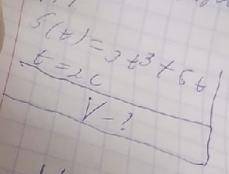 S(t)=3t³+5t
t=2c
V-?